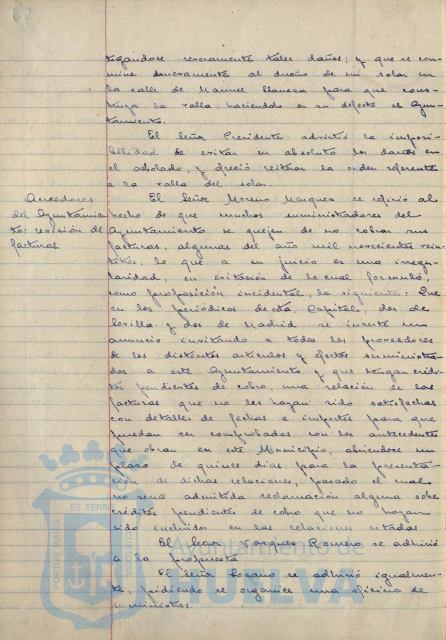 tigandose severamente tales daños; y que se con-
mine nuevamente al dueño de un solar en
la calle de Manuel Llaneza para que cons-
truya la valla, haciendo en su defecto el Ayun-
tamiento.
El Señor Presidente advirtió la imposi-
bilidad de evitar en absoluto los daños en
el arbolado, y ofreció reiterar la orden referente
a la valla del solar.
Acreedores
del Ayuntamien-
to: revisión de
facturas
El Señor Moreno Marquez se refirió al
hecho de que muchos suministradores del
Ayuntamiento se quejan de no cobrar sus
facturas, algunas del año mil novecientos vein-
titres, lo que a su juicio es una irregu-
laridad, en evitación de lo cual formuló,
como proposición incidental, la siguiente: Que
en los periódicos de esta Capital, dos de
Sevilla y dos de Madrid se inserte un
anuncio invitando a todos los proveedores
de los distintos artículos y efectos suministra-
dos a este Ayuntamiento y que tengan crédi-
tos pendientes de cobro, una relación de las
facturas que no les hayan sido satisfechas
con detalles de fechas e importes para que
puedan ser comprobadas con los antecedentes
que obran en este Municipio, abriendose un
plazo de quince días para la presenta-
ción de dichas relaciones, pasado el cual
no seria admitida reclamación alguna sobre
créditos pendientes de cobro que no hayan
sido incluidos en las relaciones citadas.
El Señor Vazquez Romero se adhirió
a la propuesta
El Señor Lozano se adhirió igualmen-
te, pidiendo se organice una oficina de
suministros.
PORTUS MARIS ET TERRAE CUSTODIA
Ayuntamiento de
HUELVA